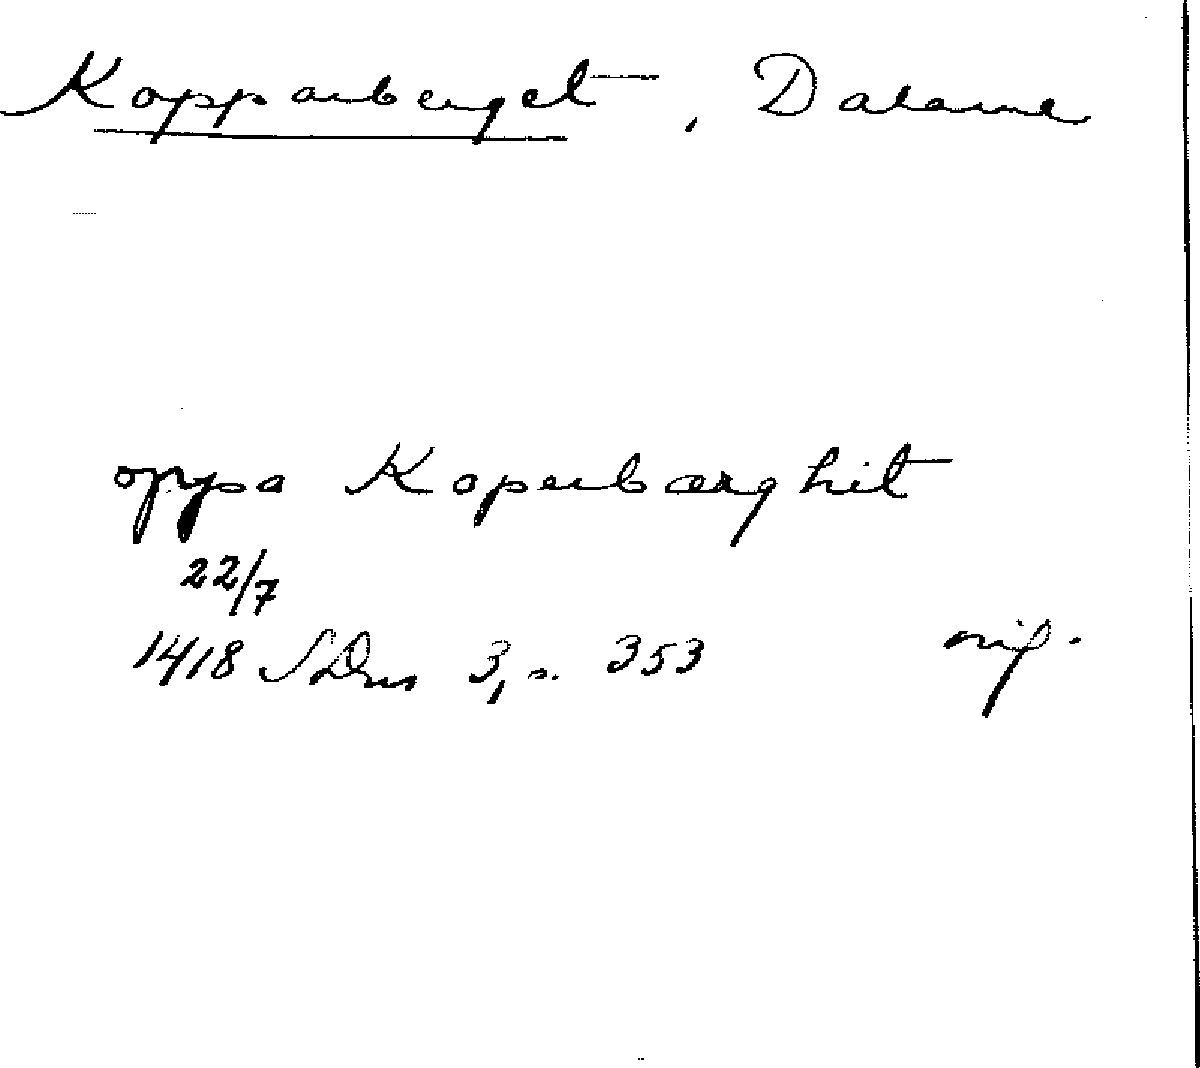 Kopparberget, Dalarna
oppa Koperbærghit
22/7
1418 SDns 3, s. 353 orig.